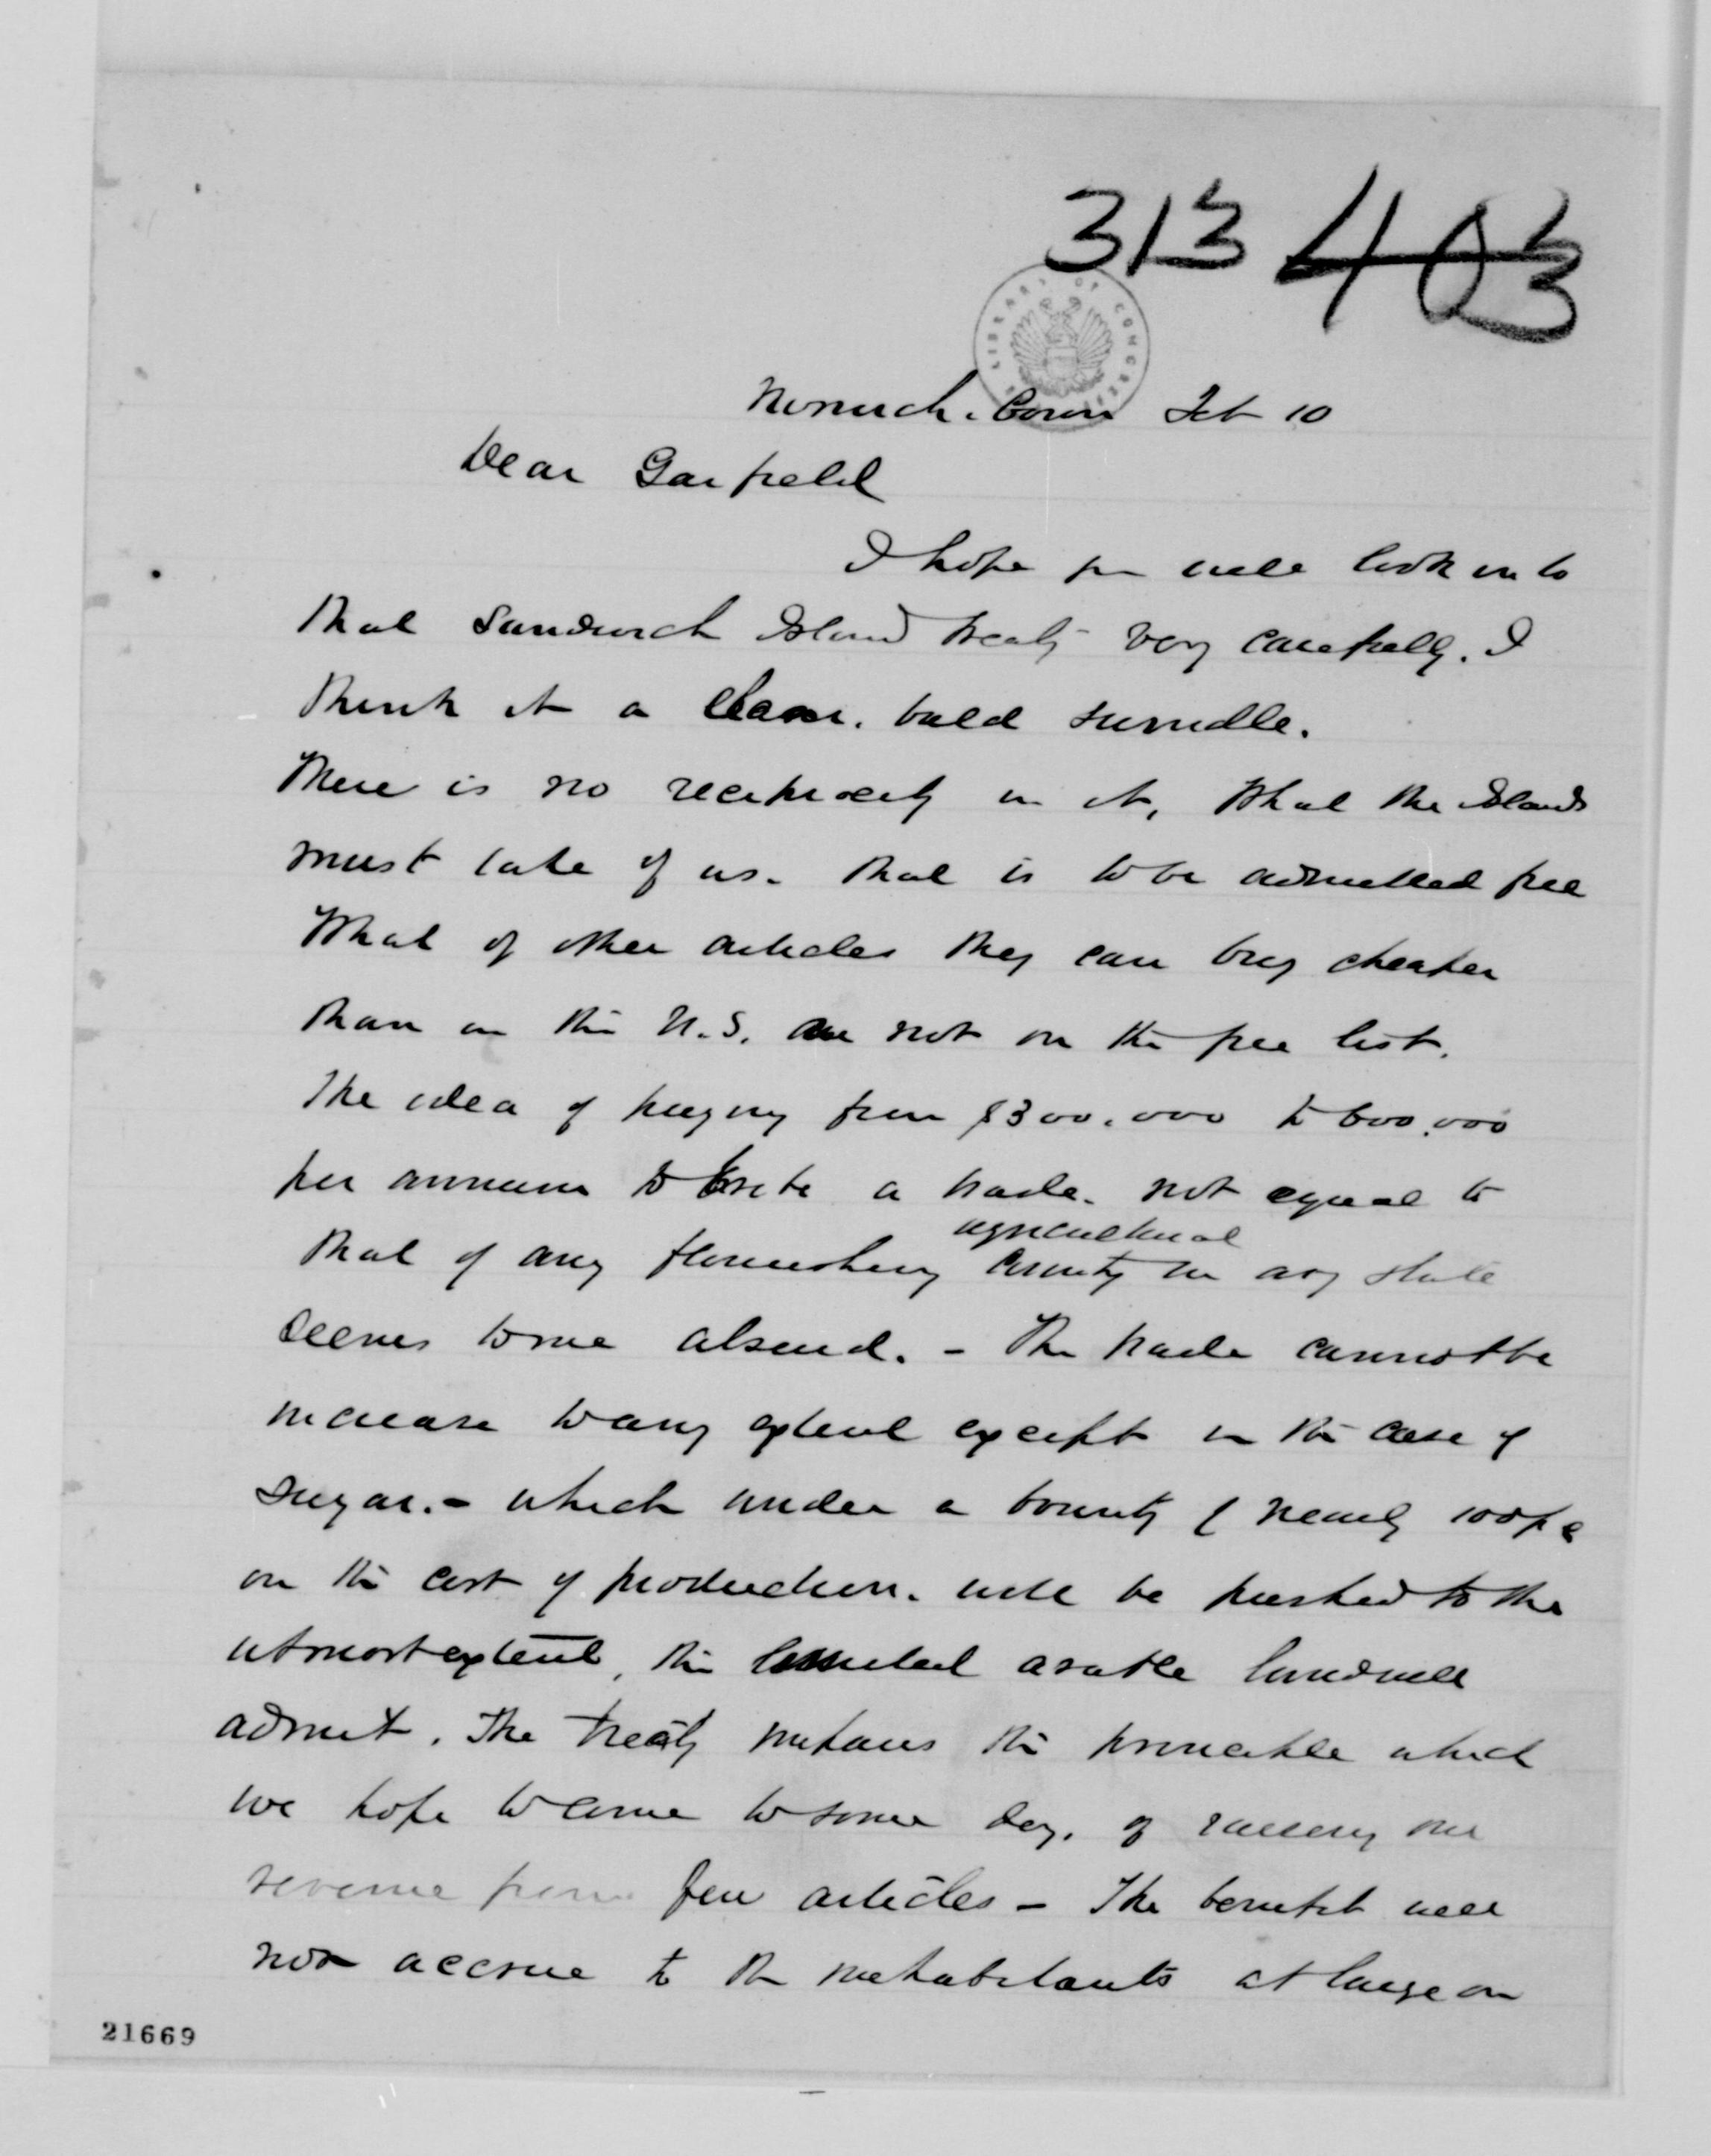 313 403
LIBRARY OF CONGRESS
Norwich. Conn Feb 10
Dear Garfield
I hope you will look into
that Sandwich Island treaty very carefully. I
think it a clean. bald swindle.
There is no reciprocity in it, What the islands
must take of us. that is to be admitted free
What of other articles they can buy cheaper
than in the U.S. are not on the free list.
The idea of paying from $300.000 to 600.000
per annum to a trade. not equal to
agricultural
that of any flourishing County in any state
seems to me absurd. - The trade cannot be
increase to any extent except in the case of
sugar. - which under a bounty of nearly 100 pc
on the cost of production. will be pushed to the
utmost extent, the limited arable land will
admit. The treaty the principle which
we hope to come to some day. of raising our
revenue from few articles - The benefit will
not accrue to the inhabitants at large on
21669